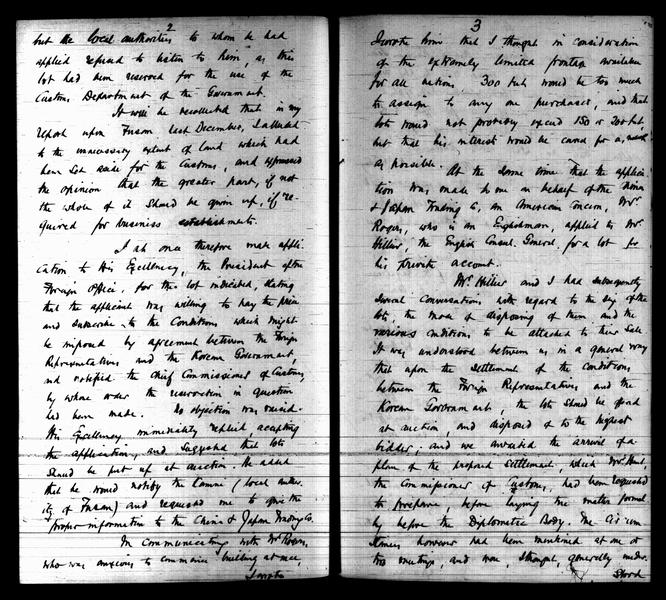 2
but the local authorities to whom he had
applied refused to listen to him, as this
lot had been reserved for the use of the
Customs Department of the Government.
It will be recollected that in my
report upon Fusan last December, I alluded
to the unnecessary extent of land which had
been set aside for the Customs, and expressed
the opinion that the greater part, if not
the whole of it should be given up, if re-
quired for business establishments.
I at once therefore made appli-
cation to His Excellency, the President of the
Foreign Office, for the lot indicated, stating
that the applicant was willing to pay the price
and subscribe to the Conditions which might
be imposed by agreement between the Foreign
Representatives and the Korean Government,
and notified the Chief Commissioner of Customs,
by whose order the reservation in question
had been made. No objection was raised.
His Excellency immediately replied accepting
the application, and suggested that lots
should be put up at auction. He added
that he would notify the Camni (local author-
ity of Fusan) and requested me to give the
proper information to the China & Japan Trading Co.
In communicating with Mr Rogers,
who was anxious to commence building at once,
I wrote
3
I wrote him that I thought in consideration
of the extremely limited frontage available
for all nations, 300 feet would be too much
to assign to any one purchaser, and that
lots would not probably exceed 150 or 200 feet,
but that his interest would be cared for as much
as possible. At the same time that the applica-
tion was made to me in behalf of the China
& Japan Trading Co, an American concern, Mr.
Rogers, who is an Englishman, applied to Mr.
Hillier, the English Consul General, for a lot for
his private account.
Mr. Hillier and I had subsequently
several conversations with regard to the size of the
lots, the mode of disposing of them and the
various conditions to be attached to their sale.
It was understood between us in a general way
that upon the settlement of the conditions
between the Foreign Representatives and the
Korean Government, the lots should be offered
at auction and disposed of to the highest
bidder; and we awaited the arrival of a
plan of the proposed settlement, which Mr. Hunt,
the Commissioner of Customs, had been requested
to prepare, before laying the matter formal-
ly before the Diplomatic Body. The circum-
stances however had been mentioned at one or
two meetings, and were, I thought, generally under-
stood